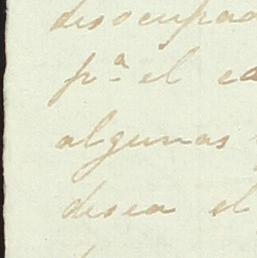 desocupad
pª el ca
algunas
desea el